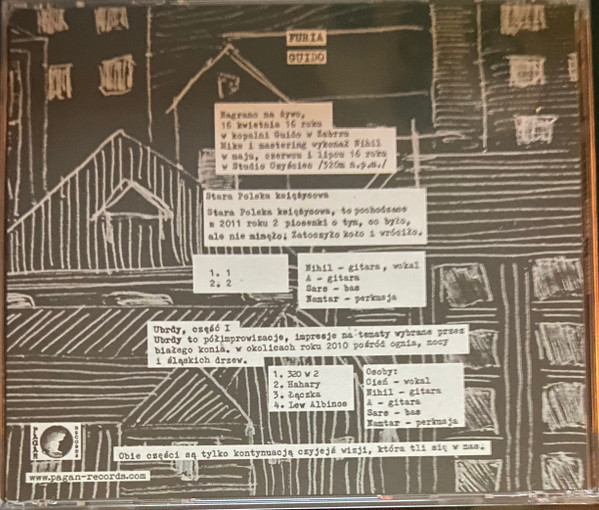 FURIA
GUIDO
Nagrano na żywo,
16 kwietnia 16 roku
w kopalni Guido w Zabrzu
Miks i mastering wykonał Nihil
w maju, czerwcu i lipcu 16 roku
w Studio Czyściec /320m n.p.m./
Stara Polska księżycowa
Stara Polska księżycowa, to pochodzące
z 2011 roku 2 piosenki o tym, co było,
ale nie minęło; Zatoczyło koło i wróciło.
1. 1
2. 2
Nihil - gitara, wokal
A - gitara
Sars - bas
Namtar - perkusja
Ubrdy, część I
Ubrdy to półimprowizacje, impresje na tematy wybrane przez
białego konia, w okolicach roku 2010 pośród ognia, nocy
i śląskich drzew.
1. 320 w 2
2. Hahary
3. Łączka
4. Lew Albinos
Osoby:
Cień - wokal
Nihil - gitara
A - gitara
Sars - bas
Namtar - perkusja
Obie części są tylko kontynuacją czyjejś wizji, która tli się w nas.
PAGAN
RECORDS
www.pagan-records.com